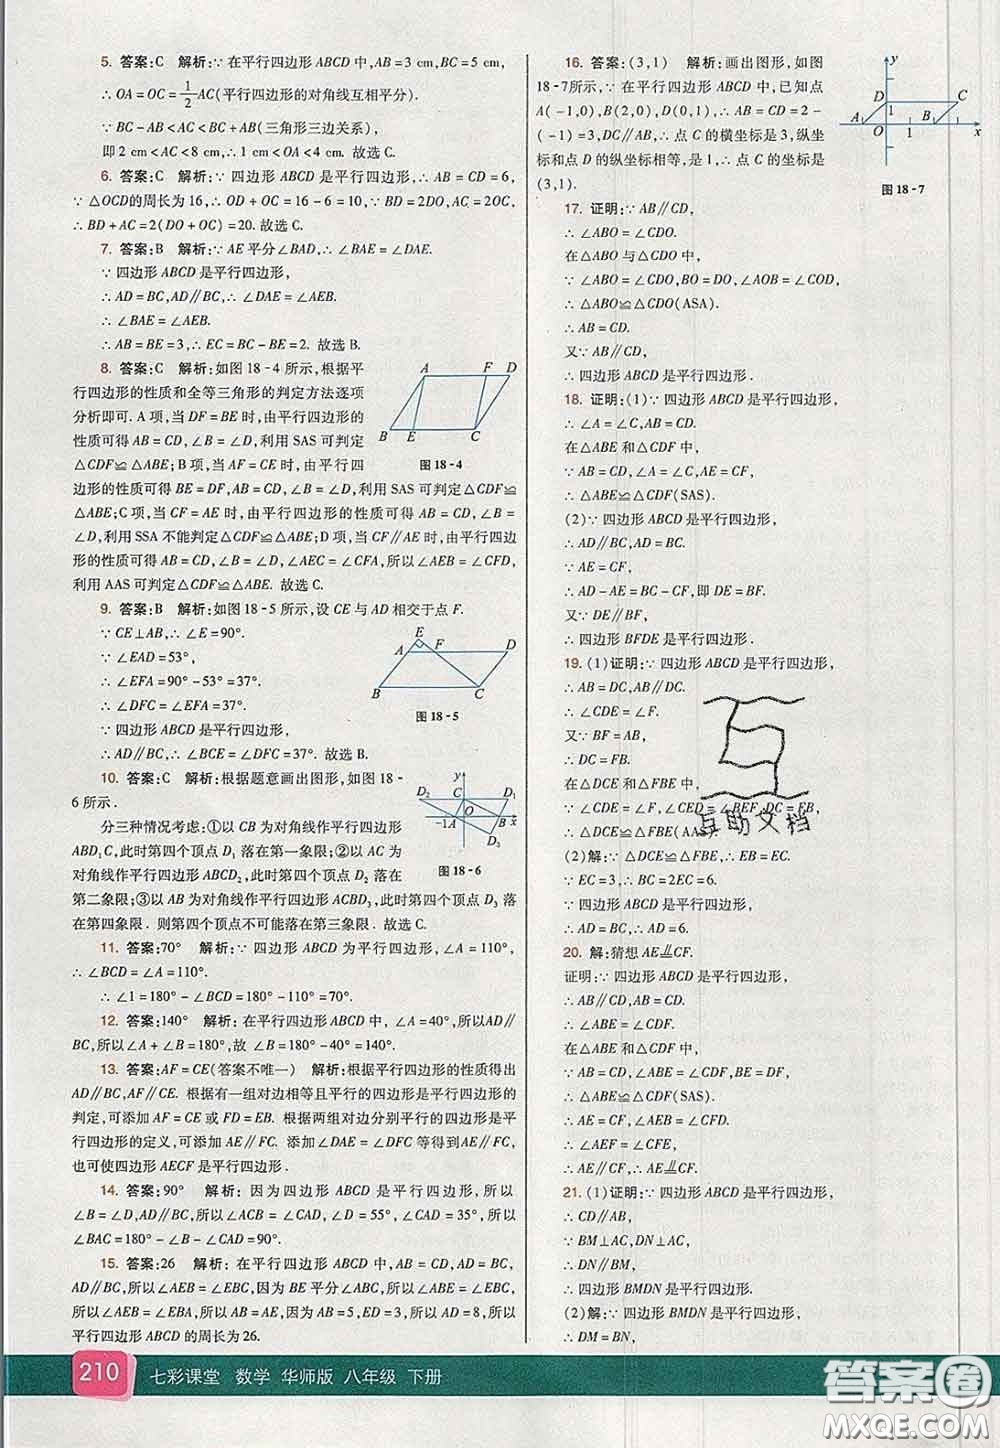 5. 答案:C 解析:∵在平行四边形ABCD中,AB=3 cm,BC=5 cm,
∴OA=OC=1/2AC(平行四边形的对角线互相平分).
∵BC-AB<AC<BC+AB(三角形三边关系),
即2 cm<AC<8 cm,∴1 cm<OA<4 cm. 故选C.
6. 答案:C 解析:∵四边形ABCD是平行四边形,∴AB=CD=6,
∵△OCD的周长为16,∴OD+OC=16-6=10,∵BD=2DO,AC=2OC,
∴BD+AC=2(DO+OC)=20. 故选C.
7. 答案:B 解析:∵AE平分∠BAD,∴∠BAE=∠DAE.
∵四边形ABCD是平行四边形,
∴AD=BC,AD∥BC,∴∠DAE=∠AEB.
∴∠BAE=∠AEB.
∴AB=BE=3,∴EC=BC-BE=2. 故选B.
8. 答案:C 解析:如图18-4所示,根据平
行四边形的性质和全等三角形的判定方法逐项
分析即可. A项,当DF=BE时,由平行四边形的
性质可得AB=CD,∠B=∠D,利用SAS可判定
△CDF≌△ABE;B项,当AF=CE时,由平行四
边形的性质可得BE=DF,AB=CD,∠B=∠D,利用SAS可判定△CDF≌
△ABE;C项,当CF=AE时,由平行四边形的性质可得AB=CD,∠B=
∠D,利用SSA不能判定△CDF≌△ABE;D项,当CF∥AE时,由平行四边
形的性质可得AB=CD,∠B=∠D,∠AEC=∠CFA,∴∠AEB=∠CFD,
利用AAS可判定△CDF≌△ABE. 故选C.
A F D
B E C
图18-4
9. 答案:B 解析:如图18-5所示,设CE与AD相交于点F.
∵CE⊥AB,∴∠E=90°.
∵∠EAD=53°,
∴∠EFA=90°-53°=37°.
∴∠DFC=∠EFA=37°.
∵四边形ABCD是平行四边形,
∴AD∥BC,∴∠BCE=∠DFC=37°. 故选B.
E
A F D
B C
图18-5
10. 答案:C 解析:根据题意画出图形,如图18-
6所示.
分三种情况考虑:①以CB为对角线作平行四边形
ABD₁C,此时第四个顶点D₁落在第一象限;②以AC为
对角线作平行四边形ABCD₂,此时第四个顶点D₂落在
第二象限;③以AB为对角线作平行四边形ACBD₃,此时第四个顶点D₃落
在第四象限. 则第四个顶点不可能落在第三象限. 故选C.
y
D₂ C D₁
O
A
-1 B x
D₃
图18-6
11. 答案:70° 解析:∵四边形ABCD为平行四边形,∠A=110°,
∴∠BCD=∠A=110°.
∴∠1=180°-∠BCD=180°-110°=70°.
12. 答案:140° 解析:在平行四边形ABCD中,∠A=40°,所以AD∥
BC,所以∠A+∠B=180°,故∠B=180°-40°=140°.
13. 答案:AF=CE(答案不唯一) 解析:根据平行四边形的性质得出
AD∥BC,AD=BC. 根据有一组对边相等且平行的四边形是平行四边形的
判定,可添加AF=CE或FD=EB. 根据两组对边分别平行的四边形是平
行四边形的定义,可添加AE∥FC. 添加∠DAE=∠DFC等得到AE∥FC,
也可使四边形AECF是平行四边形.
14. 答案:90° 解析:因为四边形ABCD是平行四边形,所以
∠B=∠D=55°,AB∥CD,所以∠BAC=∠ACD,∠D=55°,∠CAD=35°,所以
∠BAC=180°-∠B-∠CAD=90°.
15. 答案:26 解析:在平行四边形ABCD中,AB=CD,AD=BC,AD∥
BC,所以∠AEB=∠EBC,因为BE平分∠ABC,所以∠ABE=∠EBC,所以
∠AEB=∠EBA,所以AE=AB=CD=5,ED=3,所以AD=8,所以
平行四边形ABCD的周长为26.
16. 答案:(3,1) 解析:画出图形,如图
18-7所示,∵在平行四边形ABCD中,已知点
A(-1,0),B(2,0),D(0,1),∴AB=CD=2-
(-1)=3,DC∥AB,∴点C的横坐标是3,纵坐
标和点D的纵坐标相等,是1,∴点C的坐标是
(3,1).
y
D 1 C
A B
O 1 x
图18-7
17. 证明:∵AB∥CD,
∴∠ABO=∠CDO.
在△ABO与△CDO中,
∵∠ABO=∠CDO,BO=DO,∠AOB=∠COD,
∴△ABO≌△CDO(ASA).
∴AB=CD.
又∵AB∥CD,
∴四边形ABCD是平行四边形.
18. 证明:(1)∵四边形ABCD是平行四边形,
∴∠A=∠C,AB=CD.
在△ABE和△CDF中,
∵AB=CD,∠A=∠C,AE=CF,
∴△ABE≌△CDF(SAS).
(2)∵四边形ABCD是平行四边形,
∴AD∥BC,AD=BC.
∵AE=CF,
∴AD-AE=BC-CF,即DE=BF.
又∵DE∥BF,
∴四边形BFDE是平行四边形.
19. (1)证明:∵四边形ABCD是平行四边形,
∴AB=DC,AB∥DC.
∴∠CDE=∠F.
又∵BF=AB,
∴DC=FB.
在△DCE和△FBE中,
∵∠CDE=∠F,∠CED=∠BEF,DC=FB,
∴△DCE≌△FBE(AAS).
(2)解:∵△DCE≌△FBE,∴EB=EC.
∵EC=3,∴BC=2EC=6.
∵四边形ABCD是平行四边形,
∴AD=BC,∴AD=6.
20. 解:猜想AE⫫CF.
证明:∵四边形ABCD是平行四边形,
∴AB=CD,AB∥CD.
∴∠ABE=∠CDF.
在△ABE和△CDF中,
∵AB=CD,∠ABE=∠CDF,BE=DF,
∴△ABE≌△CDF(SAS).
∴AE=CF,∠AEB=∠CFD.
∴∠AEF=∠CFE,
∴AE∥CF,∴AE⫫CF.
21. (1)证明:∵四边形ABCD是平行四边形,
∴CD∥AB,
∵BM⊥AC,DN⊥AC,
∴DN∥BM,
∴四边形BMDN是平行四边形.
(2)解:∵四边形BMDN是平行四边形,
∴DM=BN,
互助文档
210 七彩课堂 数学 华师版 八年级 下册
答案圈
MXQE.COM